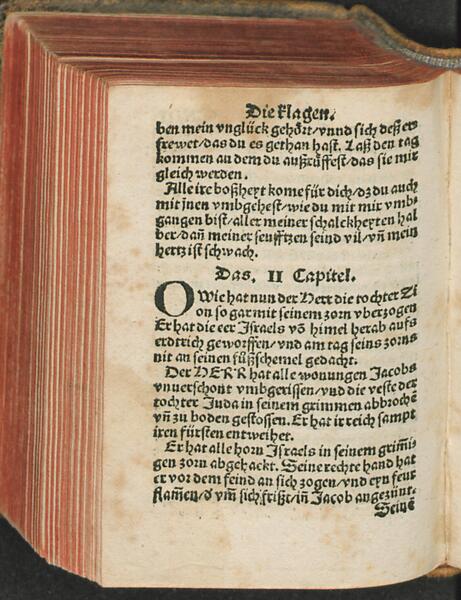 Die klagen.
ben mein vnglück gehört/vnnd sich deß er⸗
frewet/das du es gethan hast. Laß den tag
kommen an dem du außrüffest/das sie mir
gleich werden.
Alle ire boßheyt kome für dich/dz du auch
mit jnen vmbgehest/wie du mit mir vmb⸗
gangen bist/aller meiner schalckheyten hal
ber/dañ meiner seufftzen seind vil/vñ mein
hertz ist schwach.
Das. II Capitel.
O Wie hat nun der Herr die tochter Zi
on so gar mit seinem zorn vberzogen
Er hat die eer Israels võ himel herab auffs
erdtrich geworffen/vnd am tag seins zorns
nit an seinen fůßschemel gedacht.
Der HERR hat alle wonungen Jacobs
vnuerschont vmbgerissen/vnd die veste der
tochter Juda in seinem grimmen abbrochẽ
vñ zu boden gestossen. Er hat ir reich sampt
iren fürsten entweihet.
Er hat alle horn Israels in seinem grim̃i⸗
gen zorn abgehackt. Seine rechte hand hat
er vor dem feind an sich zogen/vnd eyn feur
flam̃en/d vm̃ sich frißt/in̄ Jacob angezünt.
Seinẽ